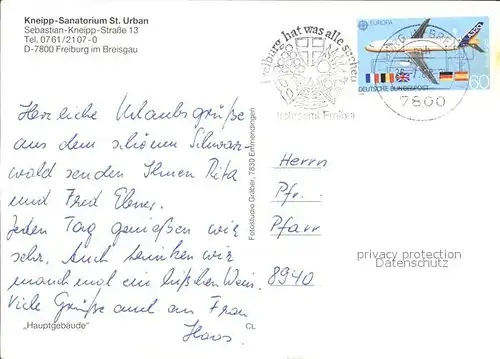 Kneipp-Sanatorium St. Urban
Sebastian-Kneipp-Straße 13
Tel. 07 61/21 07-0
D-7800 Freiburg im Breisgau
Herzliche Urlaubsgrüße
aus dem schönen Schwarz-
wald senden Ihnen Rita
und Fred Ebner.
Jeden Tag genießen wir
sehr. Auch trinken wir
manchmal ein bißchen Wein.
Viele Grüße auch an Frau
Haas.
"Hauptgebäude"
CL
Fotostudio Gräber, 7830 Emmendingen
Freiburg hat was alle suchen
EUROPA
A320
DEUTSCHE BUNDESPOST
60
7800
Herrn
Pfr.
Pfarr
8940
privacy protection
Datenschutz